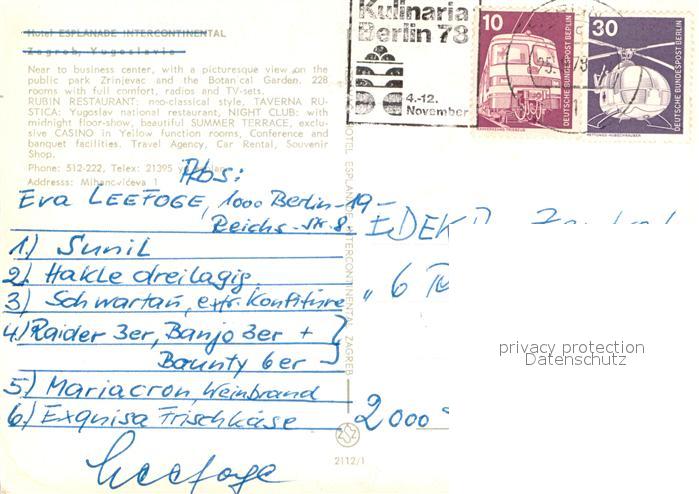 Hotel ESPLANADE INTERCONTINENTAL
Zagreb, Yugoslavia
Near to business center, with a picturesque view on the
public park Zrinjevac and the Botanical Garden. 228
rooms with full comfort, radios and TV-sets.
RUBIN RESTAURANT: neo-classical style, TAVERNA RU-
STICA: Yugoslav national restaurant, NIGHT CLUB: with
midnight floor-show, beautiful SUMMER TERRACE, exclu-
sive CASINO in Yellow function rooms, Conference and
banquet facilities. Travel Agency, Car Rental, Souvenir
Shop.
Phone: 512-222, Telex: 21395
Addresss: Mihanovićeva 1
Abs:
Eva LEEFOGE, 1000 Berlin-19-
Reichs-str. 8
1.) Sunil
2.) Hakle dreilagig
3.) Schwartau, extr. Konfitüre
4.) Raider 3er, Banjo 3er +
Bounty 6er
5.) Mariacron, Weinbrand
6.) Exquisa Frischkäse
Leefoge
HOTEL ESPLANADE INTERCONTINENTAL ZAGREB
2112/1
Kulinaria
Berlin 78
4.-12.
November
10
DEUTSCHE BUNDESPOST BERLIN
30
DEUTSCHE BUNDESPOST BERLIN
RETTUNGS-HUBSCHRAUBER
EDEKA
„ 6
2000
privacy protection
Datenschutz